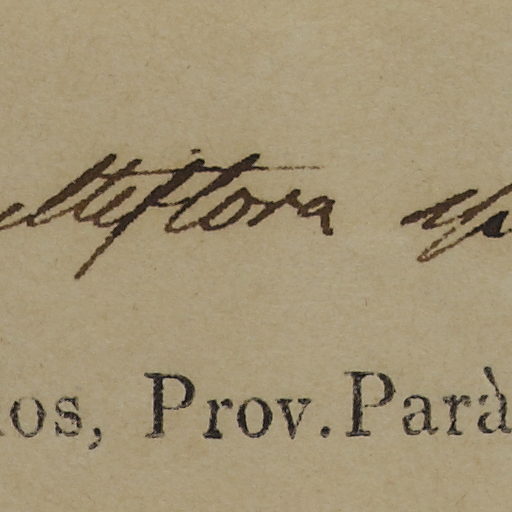 ultiflora sp
os, Prov. Parà